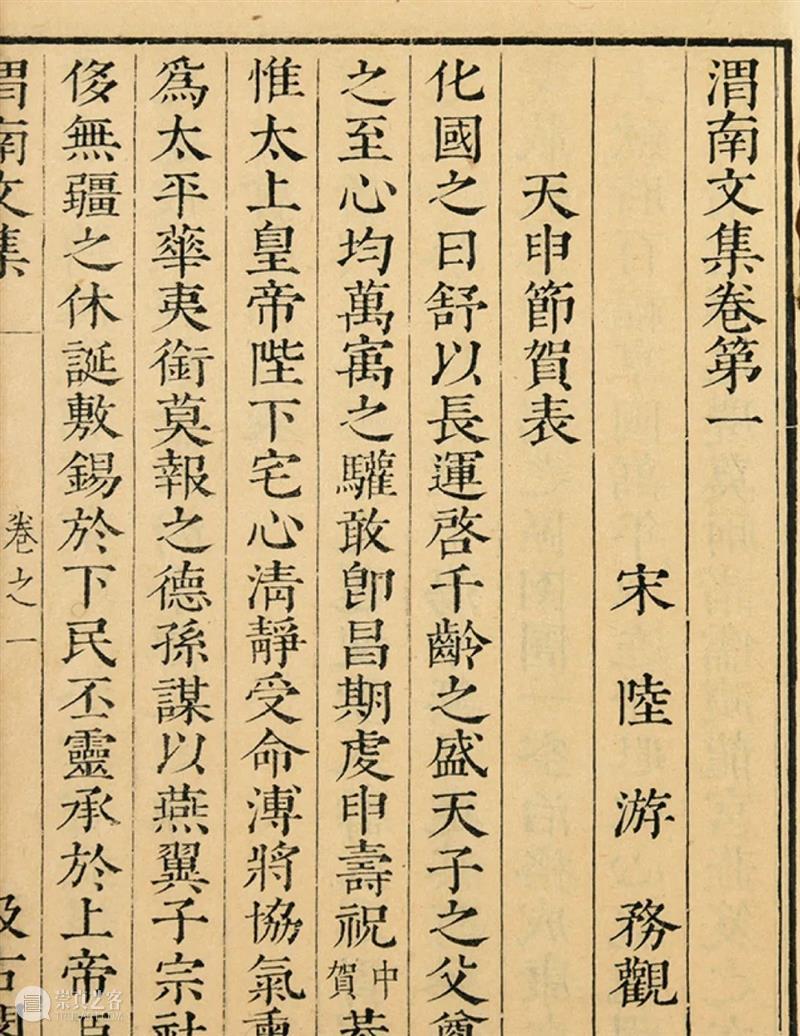 渭南文集卷第一
宋陸游務觀
天申節賀表
化國之日舒以長運啓千齡之盛天子之父尊
之至心均萬㝢之驩敢卽昌期虔申壽祝中賀恭
惟太上皇帝陛下宅心淸靜受命溥將協氣
爲太平華夷銜莫報之德孫謀以燕翼子宗社
侈無疆之休誕敷錫於下民丕靈承於上帝臣
渭南文集
卷之一
汲古閣
崇真之客